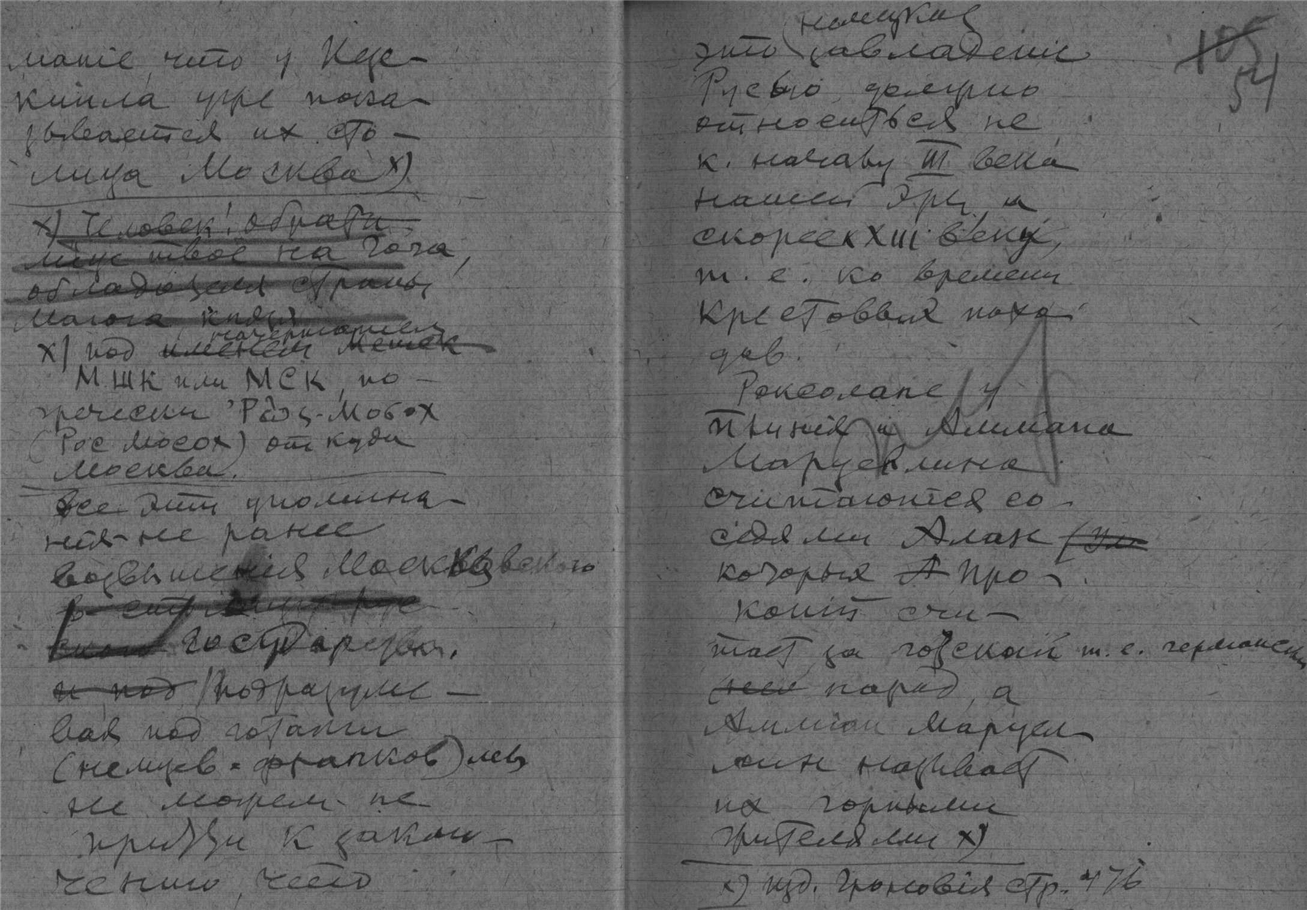 мание, что у Иезе-
киила уже пока-
зывается их сто-
лица Москва х)
х) Человек! обрати
лице твое на Гога,
обладающая страны
Магога князя
начертанием
х) под именем Мешек
МШК или МСК, по-
гречески Ῥώς-Μοσοχ
(Рос Мосох) откуда
Москва.
Все эти упомина-
ния не ранее
возвышения Московского
государства.
и под подразуме-
вая под готами
(немцев-франков) мы
не можем не
придти к заклю-
чению, что
немцков
это завладение
Русью должно
относиться не
к началу III века
нашей эры, а
скорее к XIII веку,
т. е. ко времени
Крестовых похо
дов.
Роксолане у
Плиния и Аммиана
Марцеллина
считаются со-
седями Алан
которых Про-
копий счи-
тает за готский т. е. германский
народ, а
Аммиан Марцел
лин называет
их горными
жителями х)
х) изд. Гроновия стр. 476
105
54